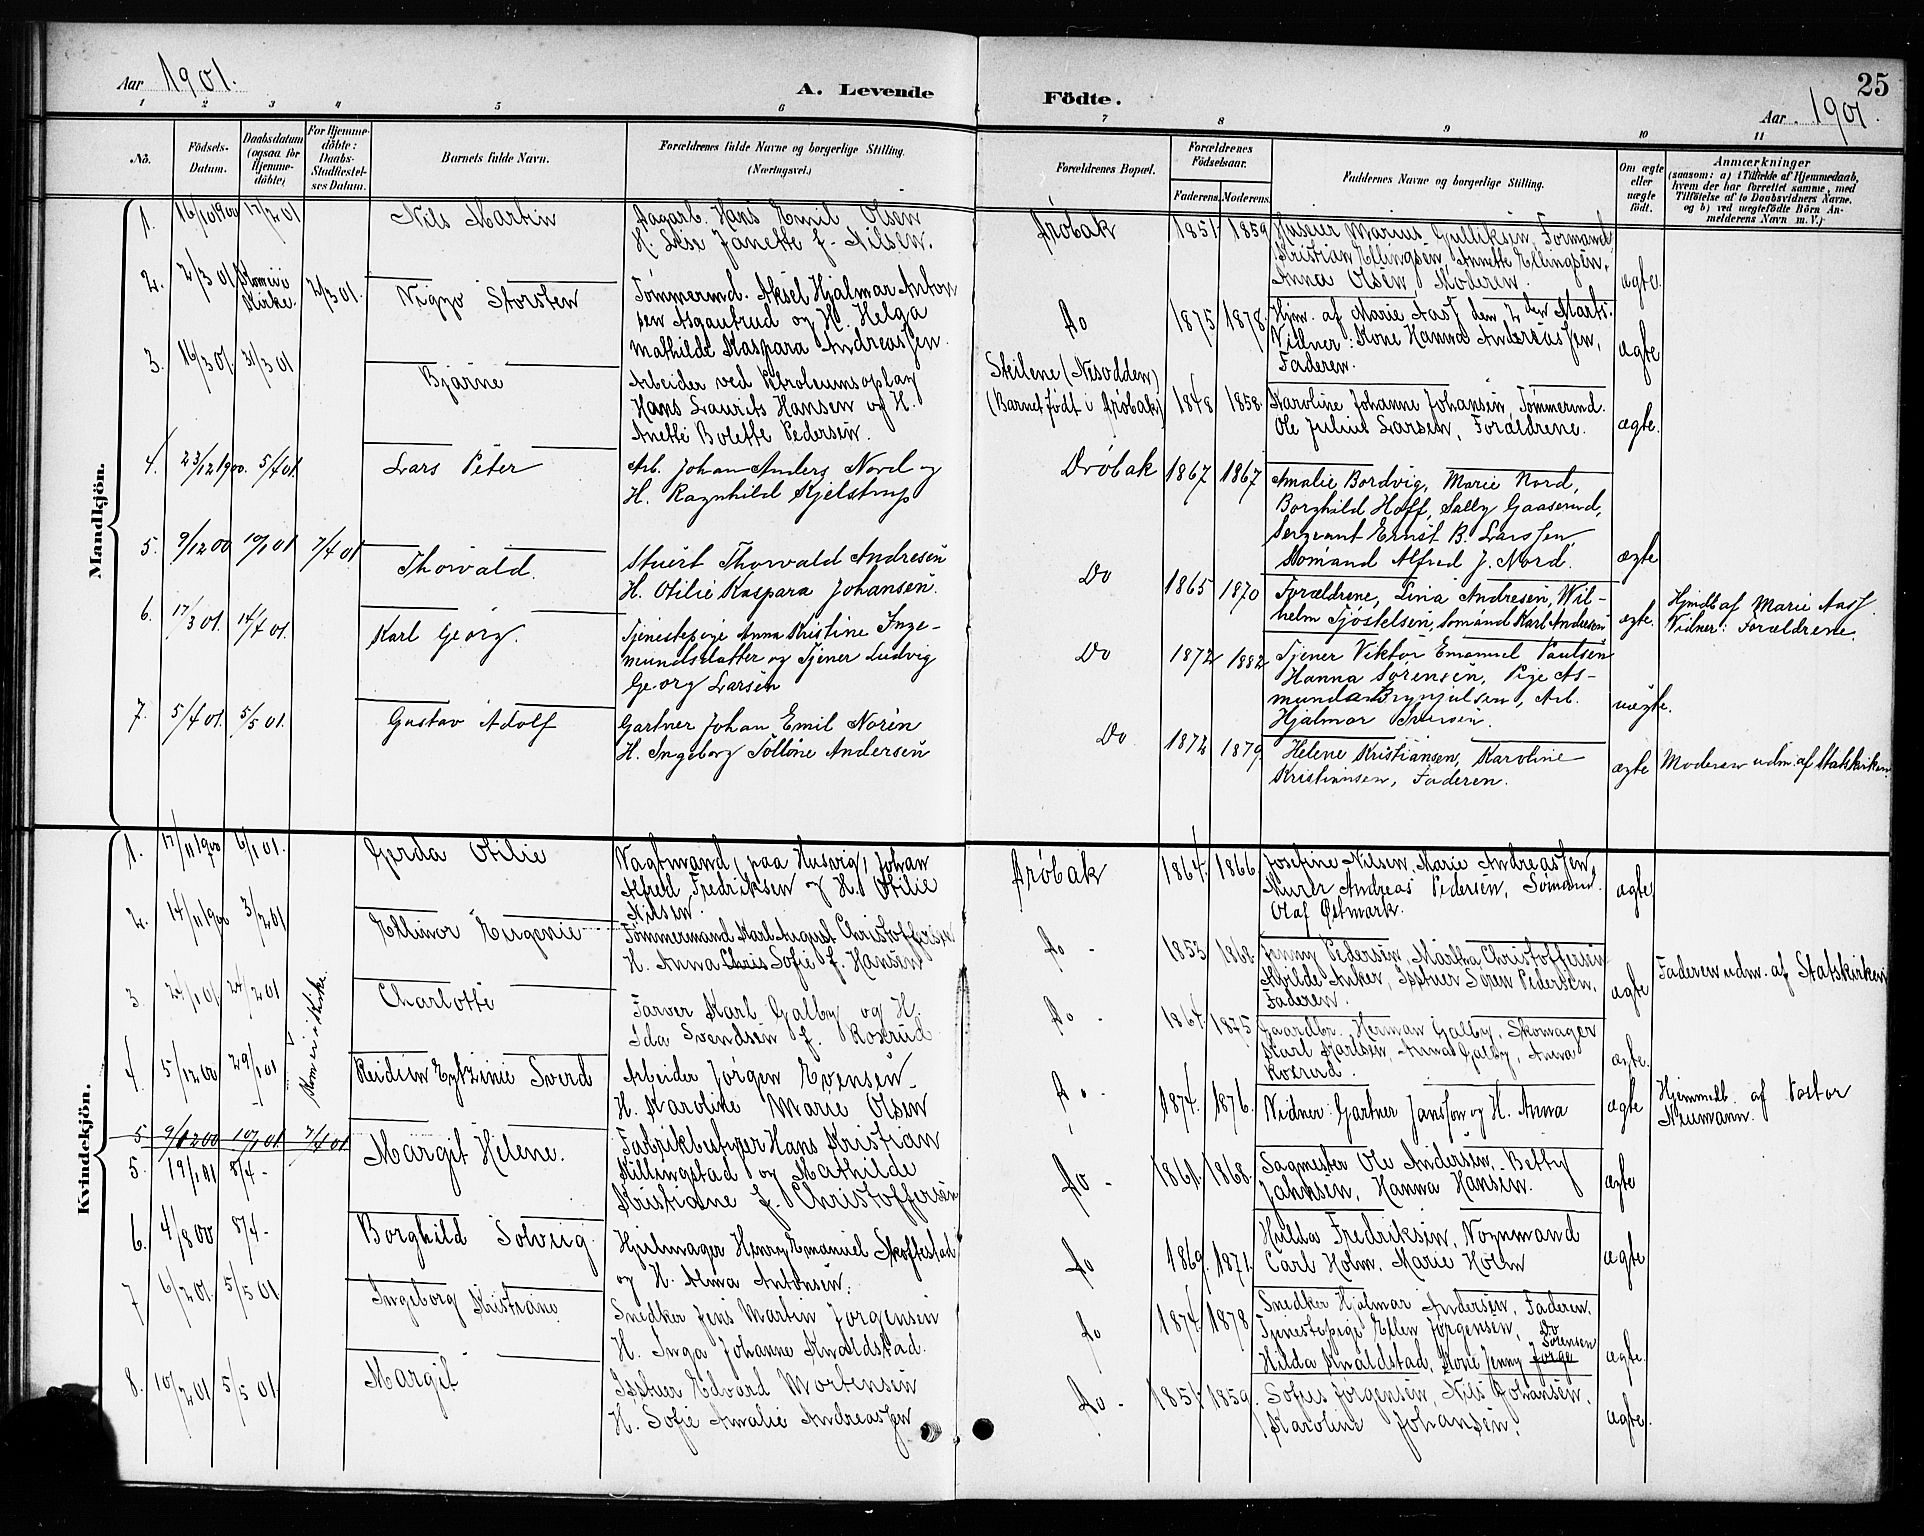 Aar 1901.
A. Levende
Födte.
25
Aar 1901.
1 2 3 4 5 6 7 8 9 10 11
No.
Födsels-Datum.
Daabsdatum (ogsaa for Hjemme-döbte)
For Hjemme-döbte: Daabs-Stadfæstel-ses Datum.
Barnets fulde Navn.
Forældrenes fulde Navne og borgerlige Stilling. (Næringsvei.)
Forældrenes Bopæl.
Forældrenes Födselsaar.
Faderens. Moderens.
Faddernes Navne og borgerlige Stilling.
Om ægte eller uægte födt.
Anmærkninger
(saasom: a) i Tilfælde af Hjemmedaab,
hvem der har forrettet samme, med
Tilföielse af to Daabsvidners Navne.
og b) ved uægtefödte Börn An-
melderens Navn m. V.)
Mandkjön.
1. 16/10 1900 17/2 01 Nils Martin
Dagarb. Hans Emil Olsen
H. Lise Janette f. Nilsen.
Drøbak 1851 1859
Huseier Marius Gulliksen, Formand
Kristian Ellingsen, Annette Ellingsen,
Anna Olsen, Moderen.
ægte.
2. 2/3 01 Kom ei i Kirke. 2/3 01. Vigzo Torsten
Tømmermd. Aksel Hjalmar Anton
sen Asgautrud og H. Helga
Mathilde Kaspara Andreassen.
Do 1875 1878.
Hjm. af Marie Aass den 2den Marts.
Vidner: Kone Hanna Andreassen,
Faderen.
ægte
3. 16/3 01. 31/3 01 Bjarne
Arbeider ved Petroleumsoplag
Hans Laurits Hansen og H.
Anette Bolette Pedersen.
Skilene (Nesodden)
(Barnet født i Drøbak) 1848 1858.
Karoline Johanne Johansen, Tømmermd.
Ole Julius Larsen, Forældrene.
ægte.
4. 23/12 1900. 5/4 01. Lars Peter
Arb. Johan Anders Nord og
H. Ragnhild Kjelstrup
Drøbak 1867 1867
Amalie Bordvig, Marie Nord,
Borghild Hoff, Sally Gaaserud,
Sergeant Ernst B. Larssen,
Sømand Alfred J. Nord.
ægte
5. 9/12 00 10/1 01 7/4 01 Thorvald.
Stuert Thorvald Andresen
H. Otilie Kaspara Johansen.
Do 1865 1870
Forældrene, Lina Andresen, Wil-
helm Tjøstelsen, Sømand Karl Andresen
ægte.
Hjmdb af Marie Aass
Vidner: Forældrene.
6. 17/3 01. 14/4 01. Karl Georg.
Tjenestepige Anna Kristine Inge-
mundsdatter og Tjener Ludvig
Georg Larsen
Do 1872 1882
Tjener Viktor Emanuel Paulsen
Hanna Sørensen, Pige As-
munda Brynjulsen, Arb.
Hjalmar Iversen.
uægte.
7. 5/4 01. 5/5 01. Gustav Adolf
Gartner Johan Emil Norén
H. Ingeborg Tolline Andersen
Do 1872 1879.
Helene Kristiansen, Karoline
Kristiansen, Faderen.
ægte
Moderen udm. af Statskirken
Kvindekjön.
1. 17/11 1900 6/1 01. Gerda Otilie
Vagtmand (paa Husvig) Johan
Alfred Fredriksen og H. Otilie
Nilsen.
Drøbak 1864. 1866.
Josefine Nilsen, Marie Andreassen
Murer Andreas Pedersen, Sømand
Olaf Østmark.
ægte
2. 14/11 1900 3/2 01 Ellinor Eugenie
Tømmermand Karl August Christoffersen
H. Anna Chris Sofie f. Hansen
do - 1853 1868
Jenny Pedersen, Martha Christoffersen
Alvilde Anker, Isstuer Søren Pedersen,
Faderen.
ægte
Faderen udm. af Statskirken
3. 24/1 01. 24/2 01 Charlotte
Farver Karl Galby og H.
Ida Svendsen f. Rosrud
do - 1864. 1875.
Gaardbr. Herman Galby, Skomager
Karl Karlsen, Anna Galby, Anna
Rosrud.
ægte.
4. 5/12 00 29/1 01 Kom ei i Kirke. Reidun Sverd
Arbeider Jørgen Evensen
H. Karoline Marie Olsen
do - 1874. 1876.
Vidner: Gartner Jansson og H. Anna
ægte
Hjemmdb. af Pastor
Neumann.
5 9/12 00 10/1 01 7/4 01
5. 19/1 01 8/4 - Margit Helene.
Fabrikbestyrer Hans Kristian
Killingstad og Mathilde
Kristiane f. Christoffersen
do - 1861. 1868.
Sagmester Ole Andersen, Betty
Jahnsen, Hanna Hansen.
ægte
6. 4/8 00 8/4 - Borghild Solveig.
Hjulmager Henry Emanuel Skoffestad
og H. Alma Antonsen.
do 1869. 1871.
Hulda Fredriksen, Vognmand
Carl Holm, Marie Holm
ægte
7 6/2 01. 5/5 01 Ingeborg Kristiane
Snedker Jens Martin Jørgensen
H. Inga Johanne Knaldstad.
do 1874. 1878
Snedker Hjalmar Andersen, Faderen.
Tjenestepige Ellen Jørgensen, Do
Hilda Knaldstad, Kone Jenny Jørge Sørensen
ægte.
8. 10/2 01 5/5 01. Margit
Isstuer Edvard Mortensen
H. Sofie Amalie Andreassen
do - 1851. 1859.
Sofus Jørgensen, Nils Johansen,
Karoline Johansen.
ægte.